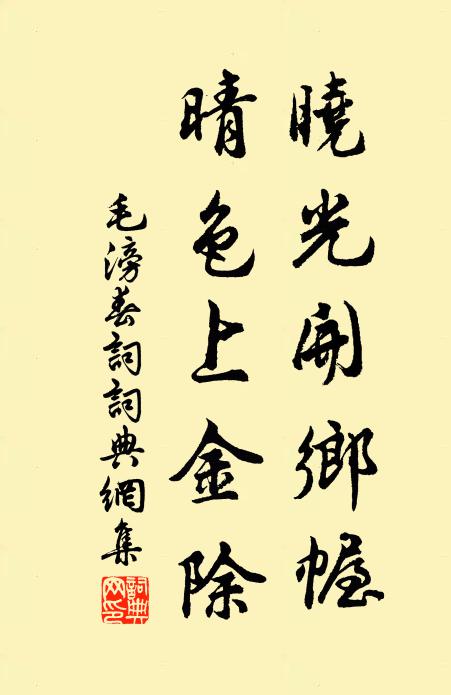 曉光開鄉幄
晴色上金除
毛滂春詞詞典網集
詞典網印